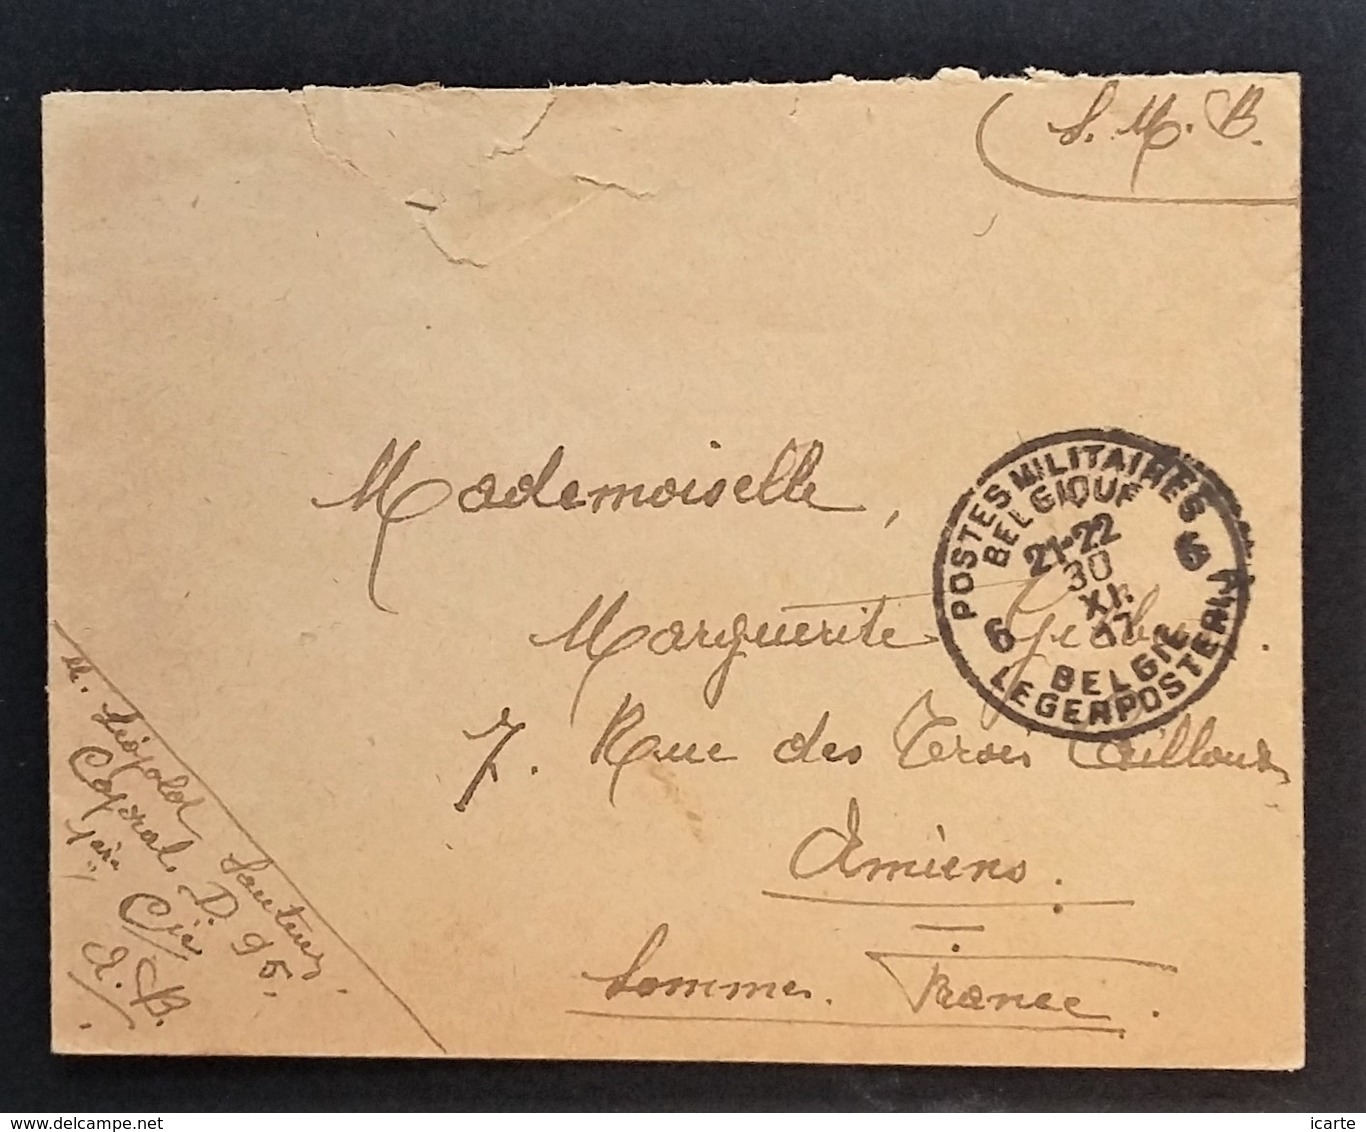 S. M. B.
Mademoiselle,
Marguerite
7. Rue des Trois Cailloux
Amiens.
Somme. France.
POSTES MILITAIRES
BELGIQUE
21-22
30
XI.
17
6 6
BELGIE
LEGERPOSTERIJ
M. Léopold Sauteur
Caporal. D. 95.
1ère Cie
A. B.
delcampe.net
icarte